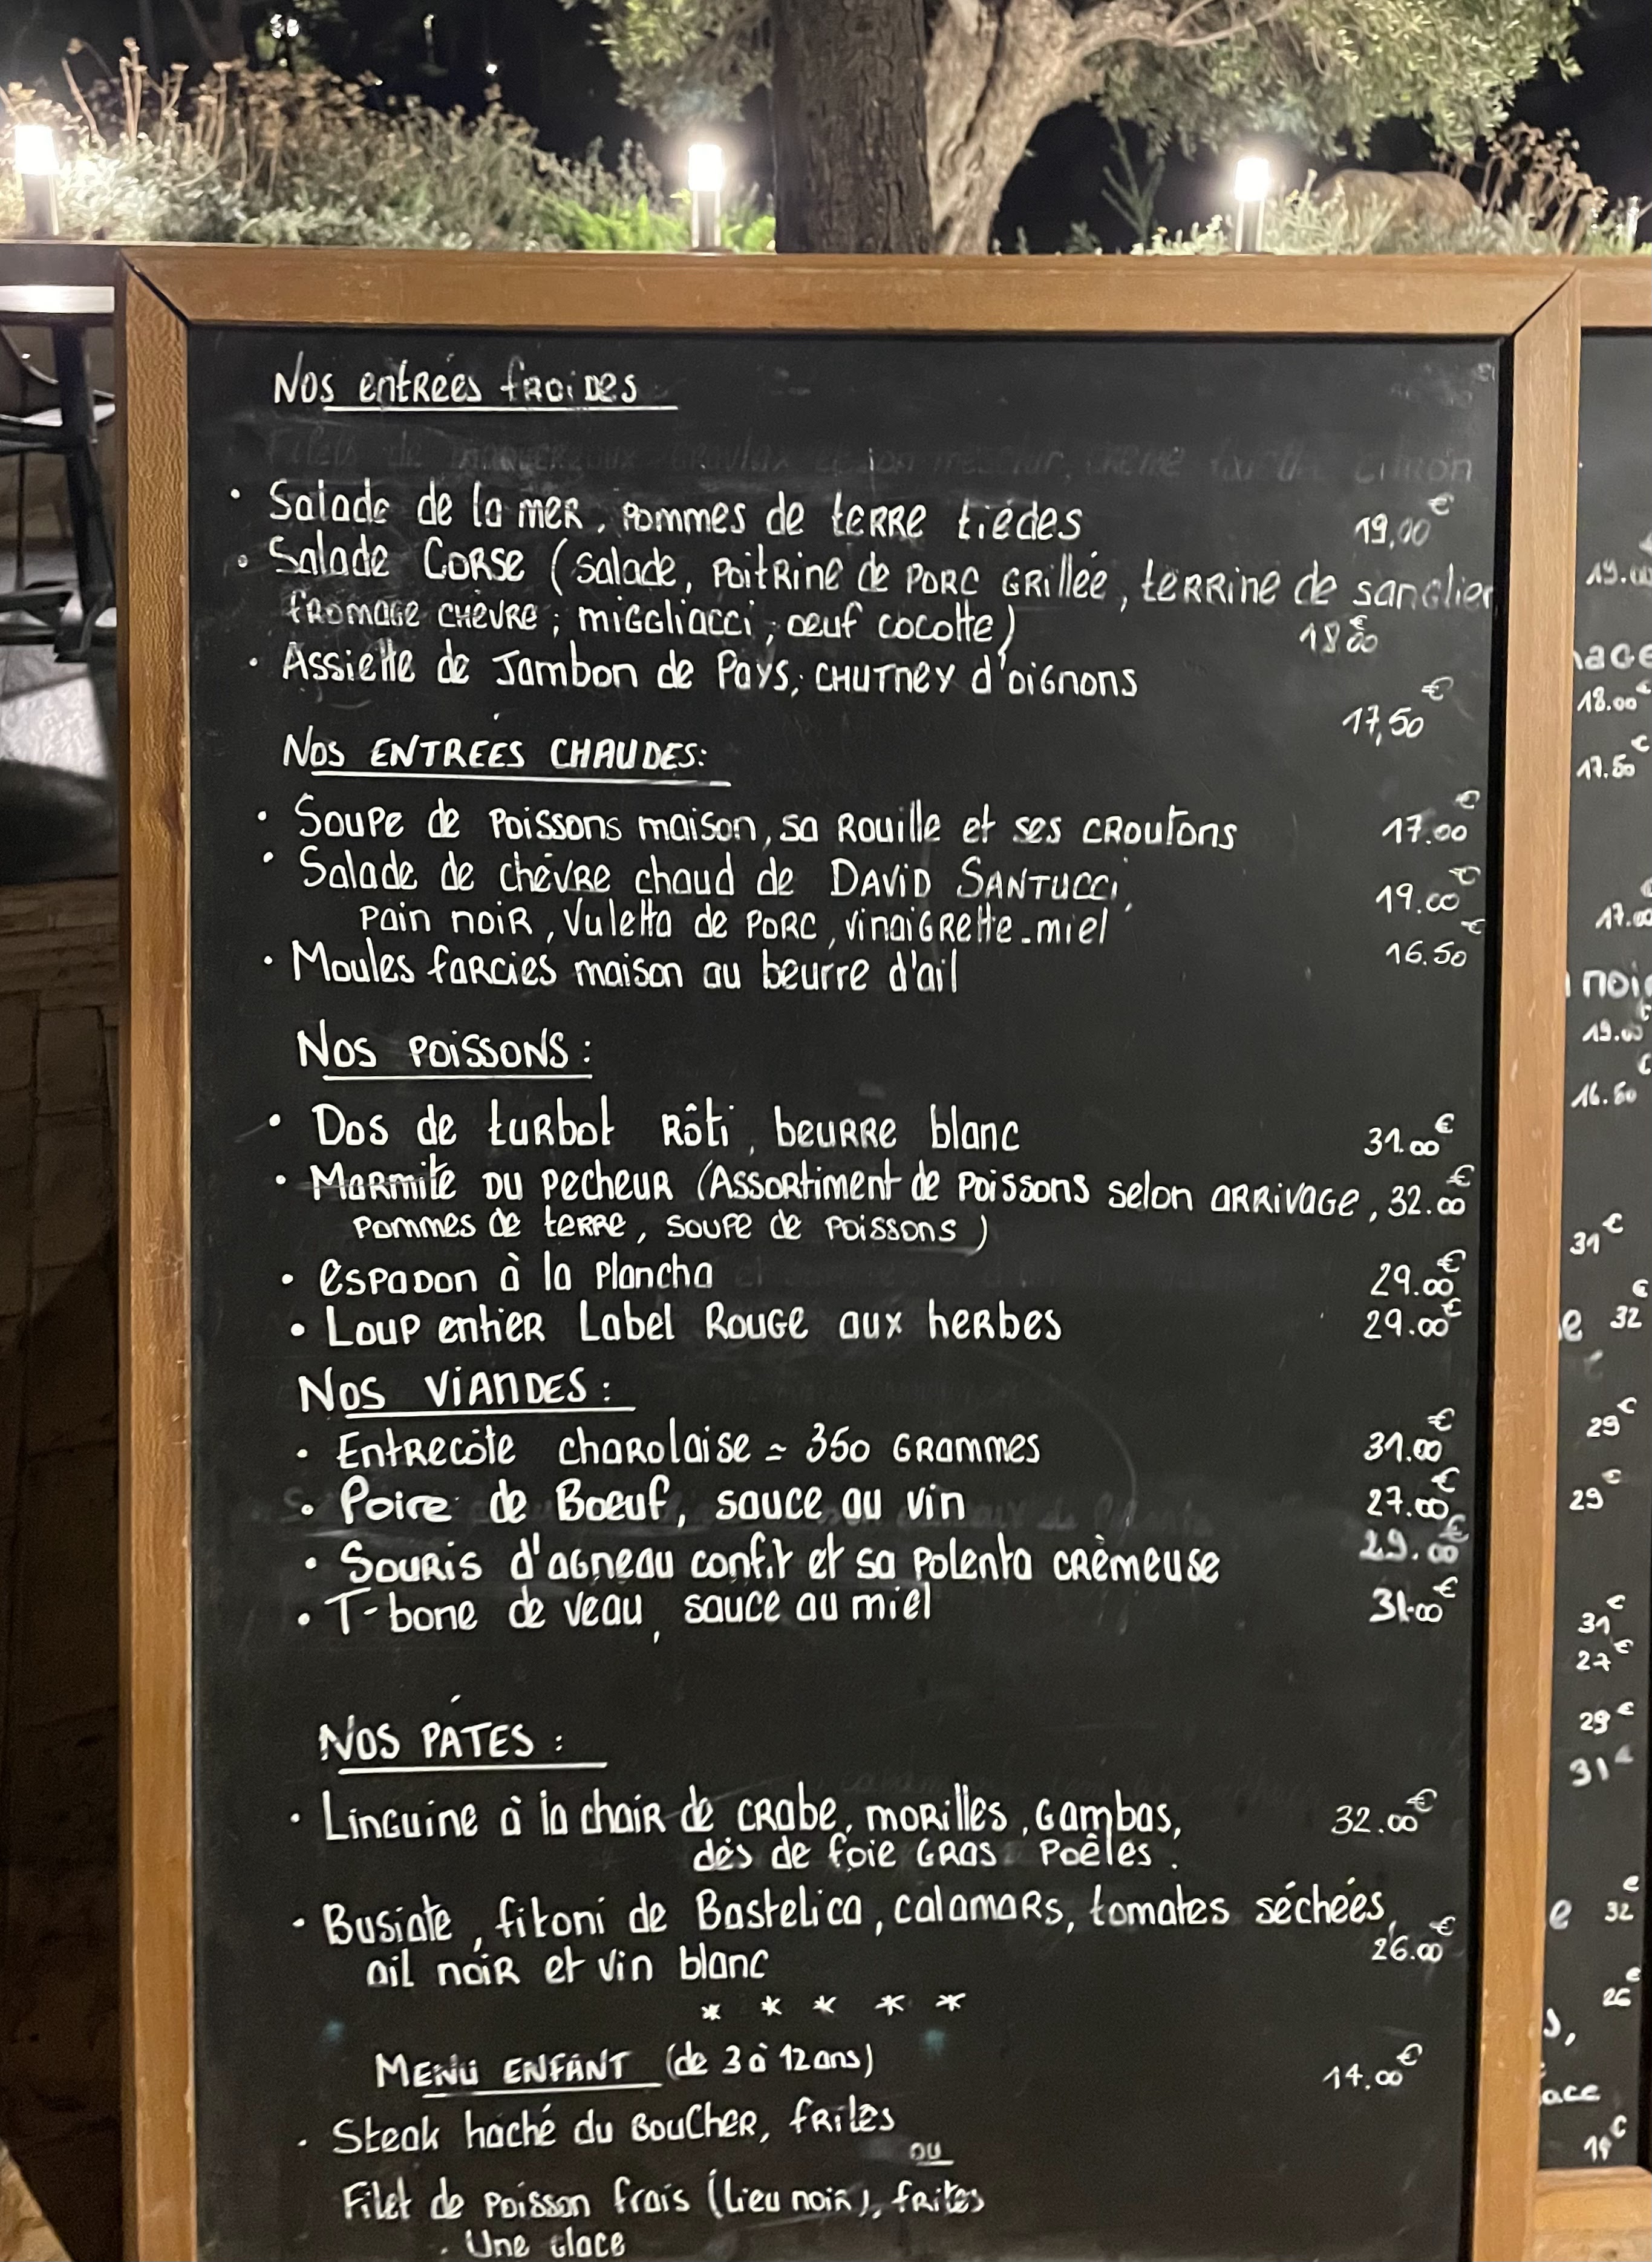 Nos entrées froides
Salade de la mer, pommes de terre tiédes 19,00€
Salade Corse (salade, poitrine de porc grillée, terrine de sanglier
fromage chèvre, miggliacci, œuf cocotte) 18€00
Assiette de Jambon de Pays, chutney d'oignons
17,50€
Nos ENTREES CHAUDES:
Soupe de poissons maison, sa rouille et ses croutons 17.00€
Salade de chévre chaud de DAVID SANTUCCI, 19.00€
pain noir, Vuletta de porc, vinaigrette-miel
Moules farcies maison au beurre d'ail 16.50€
Nos Poissons:
Dos de turbot rôti, beurre blanc 31.00€
Marmite du pecheur (Assortiment de poissons selon arrivage, 32.00€
pommes de terre, soupe de poissons)
espadon à la plancha 29.00€
Loup entier Label Rouge aux herbes 29.00€
Nos VIANDES:
Entrecôte charolaise ≃ 350 grammes 31.00€
Poire de Boeuf, sauce au vin 27.00€
Souris d'agneau confit et sa polenta crèmeuse 29.00€
T-bone de veau, sauce au miel 31.00€
NOS PATES:
Linguine à la chair de crabe, morilles, gambas, 32.00€
dés de foie gras poêlés.
Busiate, fitoni de Bastelica, calamars, tomates séchées,
ail noir et vin blanc 26.00€
* * * * *
MENU ENFANT (de 3 à 12 ans) 14.00€
Steak haché du Boucher, frites
ou
Filet de poisson frais (lieu noir), frites
Une glace
19.00
18.00€
17.50€
17.00
noir
19.00€
16.50€
31€
e 32€
29€
29€
31€
27€
29€
31€
e 32€
26€
s,